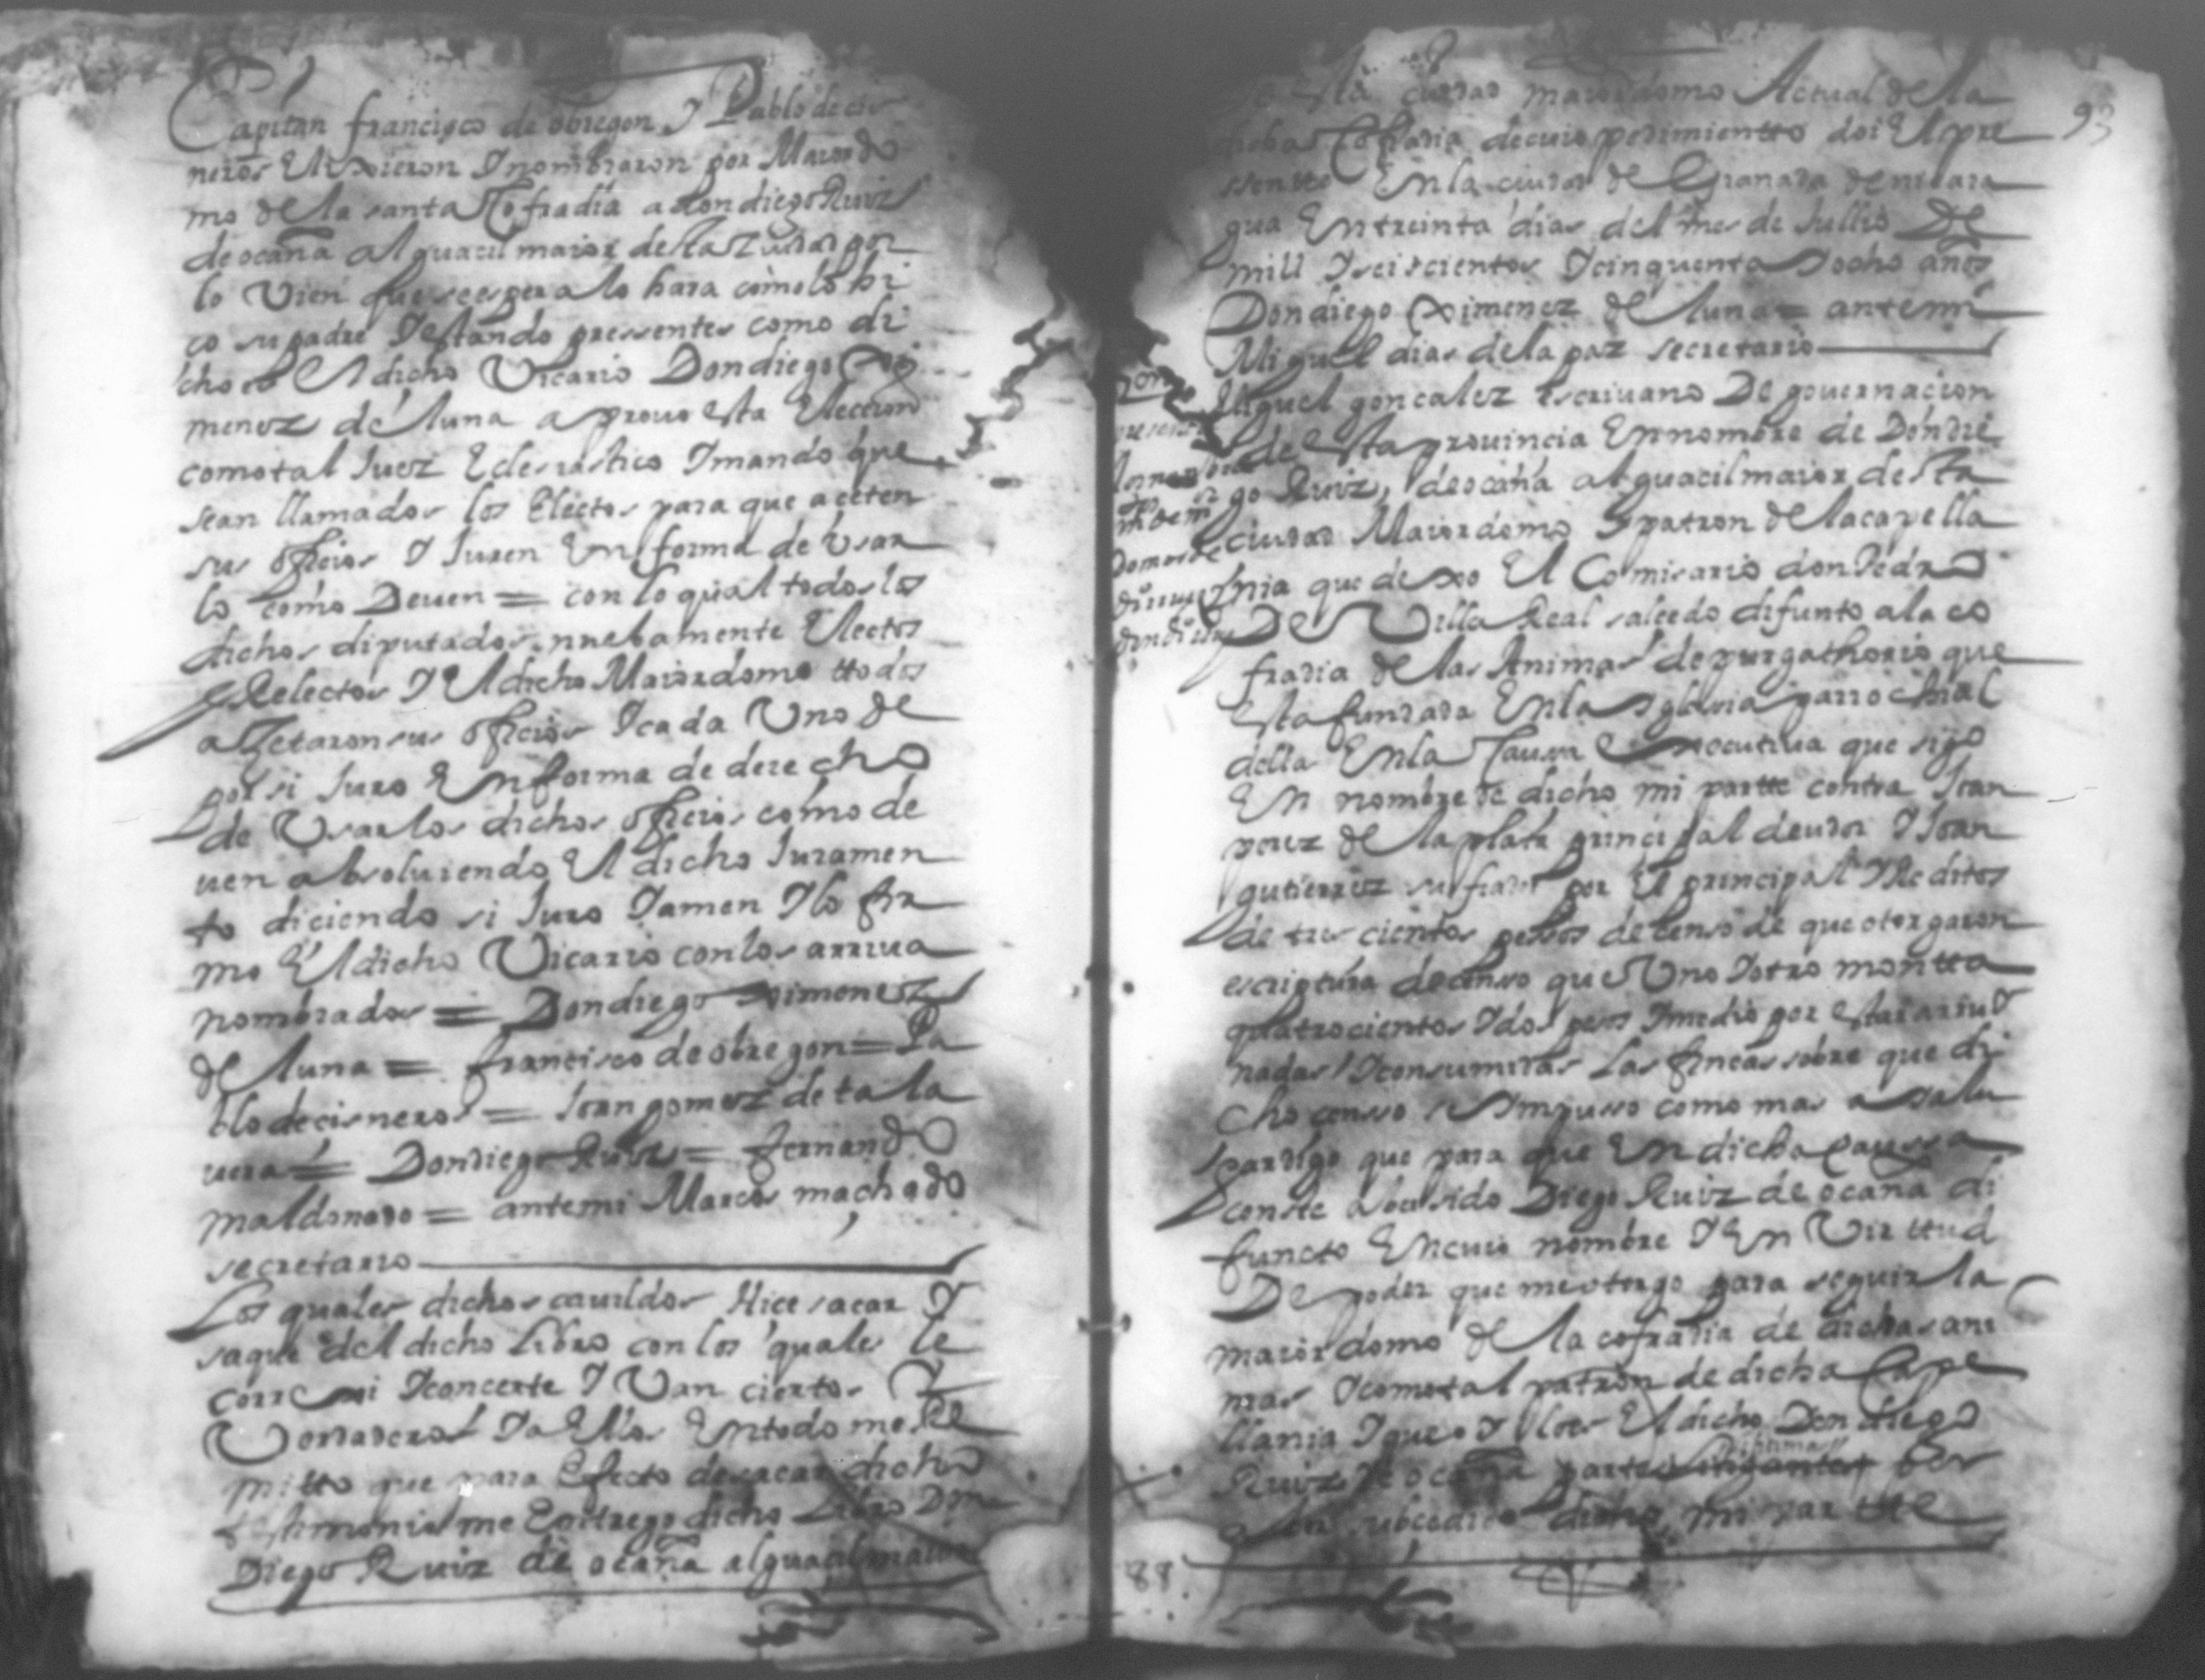 Capitan francisco de obregon Y Pablo de cis
neros Elixieron Y nombraron por Maiordo
mo de la santa Cofradia a don diego Ruiz
de ocaña alguacil maior desta Ziudad por
lo Vien que se espera lo hara como lo hi
ço su padre Y estando pressentes como di
cho es El dicho Vicario Don diego Xi
menez de luna aprouo esta Eleccion
como tal Juez Eclesiastico Y mando que
sean llamados los Electos para que aceten
sus oficios Y Juren En forma de Vsar
lo como Deuen = con lo qual todos los
dichos diputados nuebamente Electos
Y Relectos Y El dicho Maiordomo ttodos
aZetaron sus oficios Y cada Uno de
por si Juro En forma de derecho
de Vsar los dichos oficios como de
uen absoluiendo El dicho Juramen
to diciendo si Juro Y amen Y lo fir
mo El dicho Vicario con los arriua
nombrados = Don diego Ximenez
de luna = francisco de obregon = Pa
blo de cisneros = Joan gomez de tala
uera = Don diego Ruiz = fernando
maldonado = ante mi Marcos machado
secretario
Los quales dichos cauildos Hice sacar Y
saque del dicho Libro con los quales le
corre Y concerte Y Van ciertos Y
Verdaderos Y a Ellos En todo me Re
mitto que para Efecto de sacar dicho
testimonio me Entrego dicho Libro Don
Diego Ruiz de ocaña alguacil maior
93
esta ciudad maiordomo Actual de la
dicha Cofradia de cuio pedimientto doi El pre
ssentte En la ciudad de Granada de nicara
gua En treinta dias del mes de Jullio De
mill Y seiscientos Y cinquenta Y ocho años
Don diego Ximenez de luna = ante mi
Miguel dias de la paz secretario
Miguel goncalez Escriuano De gouernacion
de esta prouincia En nombre de Don die
go Ruiz, de ocaña alguacil maior de sta
ciudad Maiordomo Y patron de la capella
nia que dexo El Comisario don Pedro
De Villa Real salcedo difunto a la co
fradia de las Animas de purgathorio que
esta fundada En la Yglesia parrochial
della En la Caussa Executiua que sigo
En nombre de dicho mi partte contra Joan
perez de la plata principal deudor Y Joan
gutierrez su fiador por El principal Y Reditos
de tres cientos pessos de censo de que otorgaron
escriptura de censo que Uno Y otro montta
quatrocientos Y dos pesos Y medio por estar arrui
nadas Y consumidas Las fincas sobre que di
cho censso se Ympusso como mas
digo que para que En dicha Caussa
conste a ver sido Diego Ruiz de ocaña di
functo En cuio nombre Y En Virttud
De poder que me otorgo para seguir la
maiordomo de la cofradia de dichas ani
mas Y como tal patron de dicha Cape
llania Y que oY lo es El dicho Don diego
Ruiz de ocaña parte
a ber subcedido dicho mi partte
88